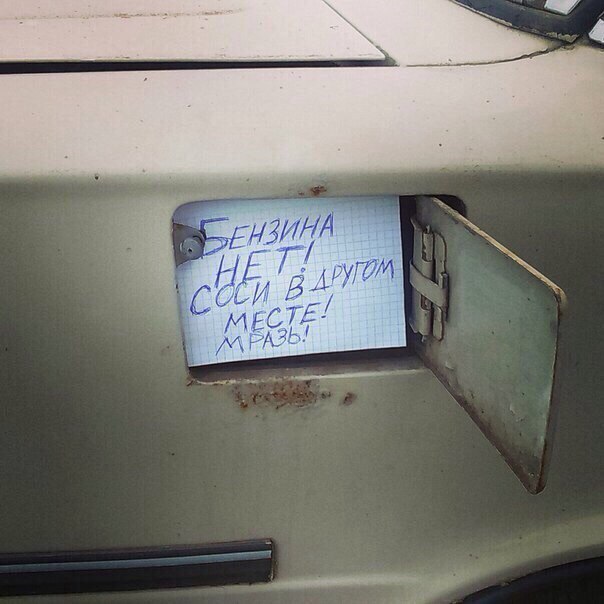 БЕНЗИНА
НЕТ!
СОСИ В ДРУГОМ
МЕСТЕ!
МРАЗЬ!